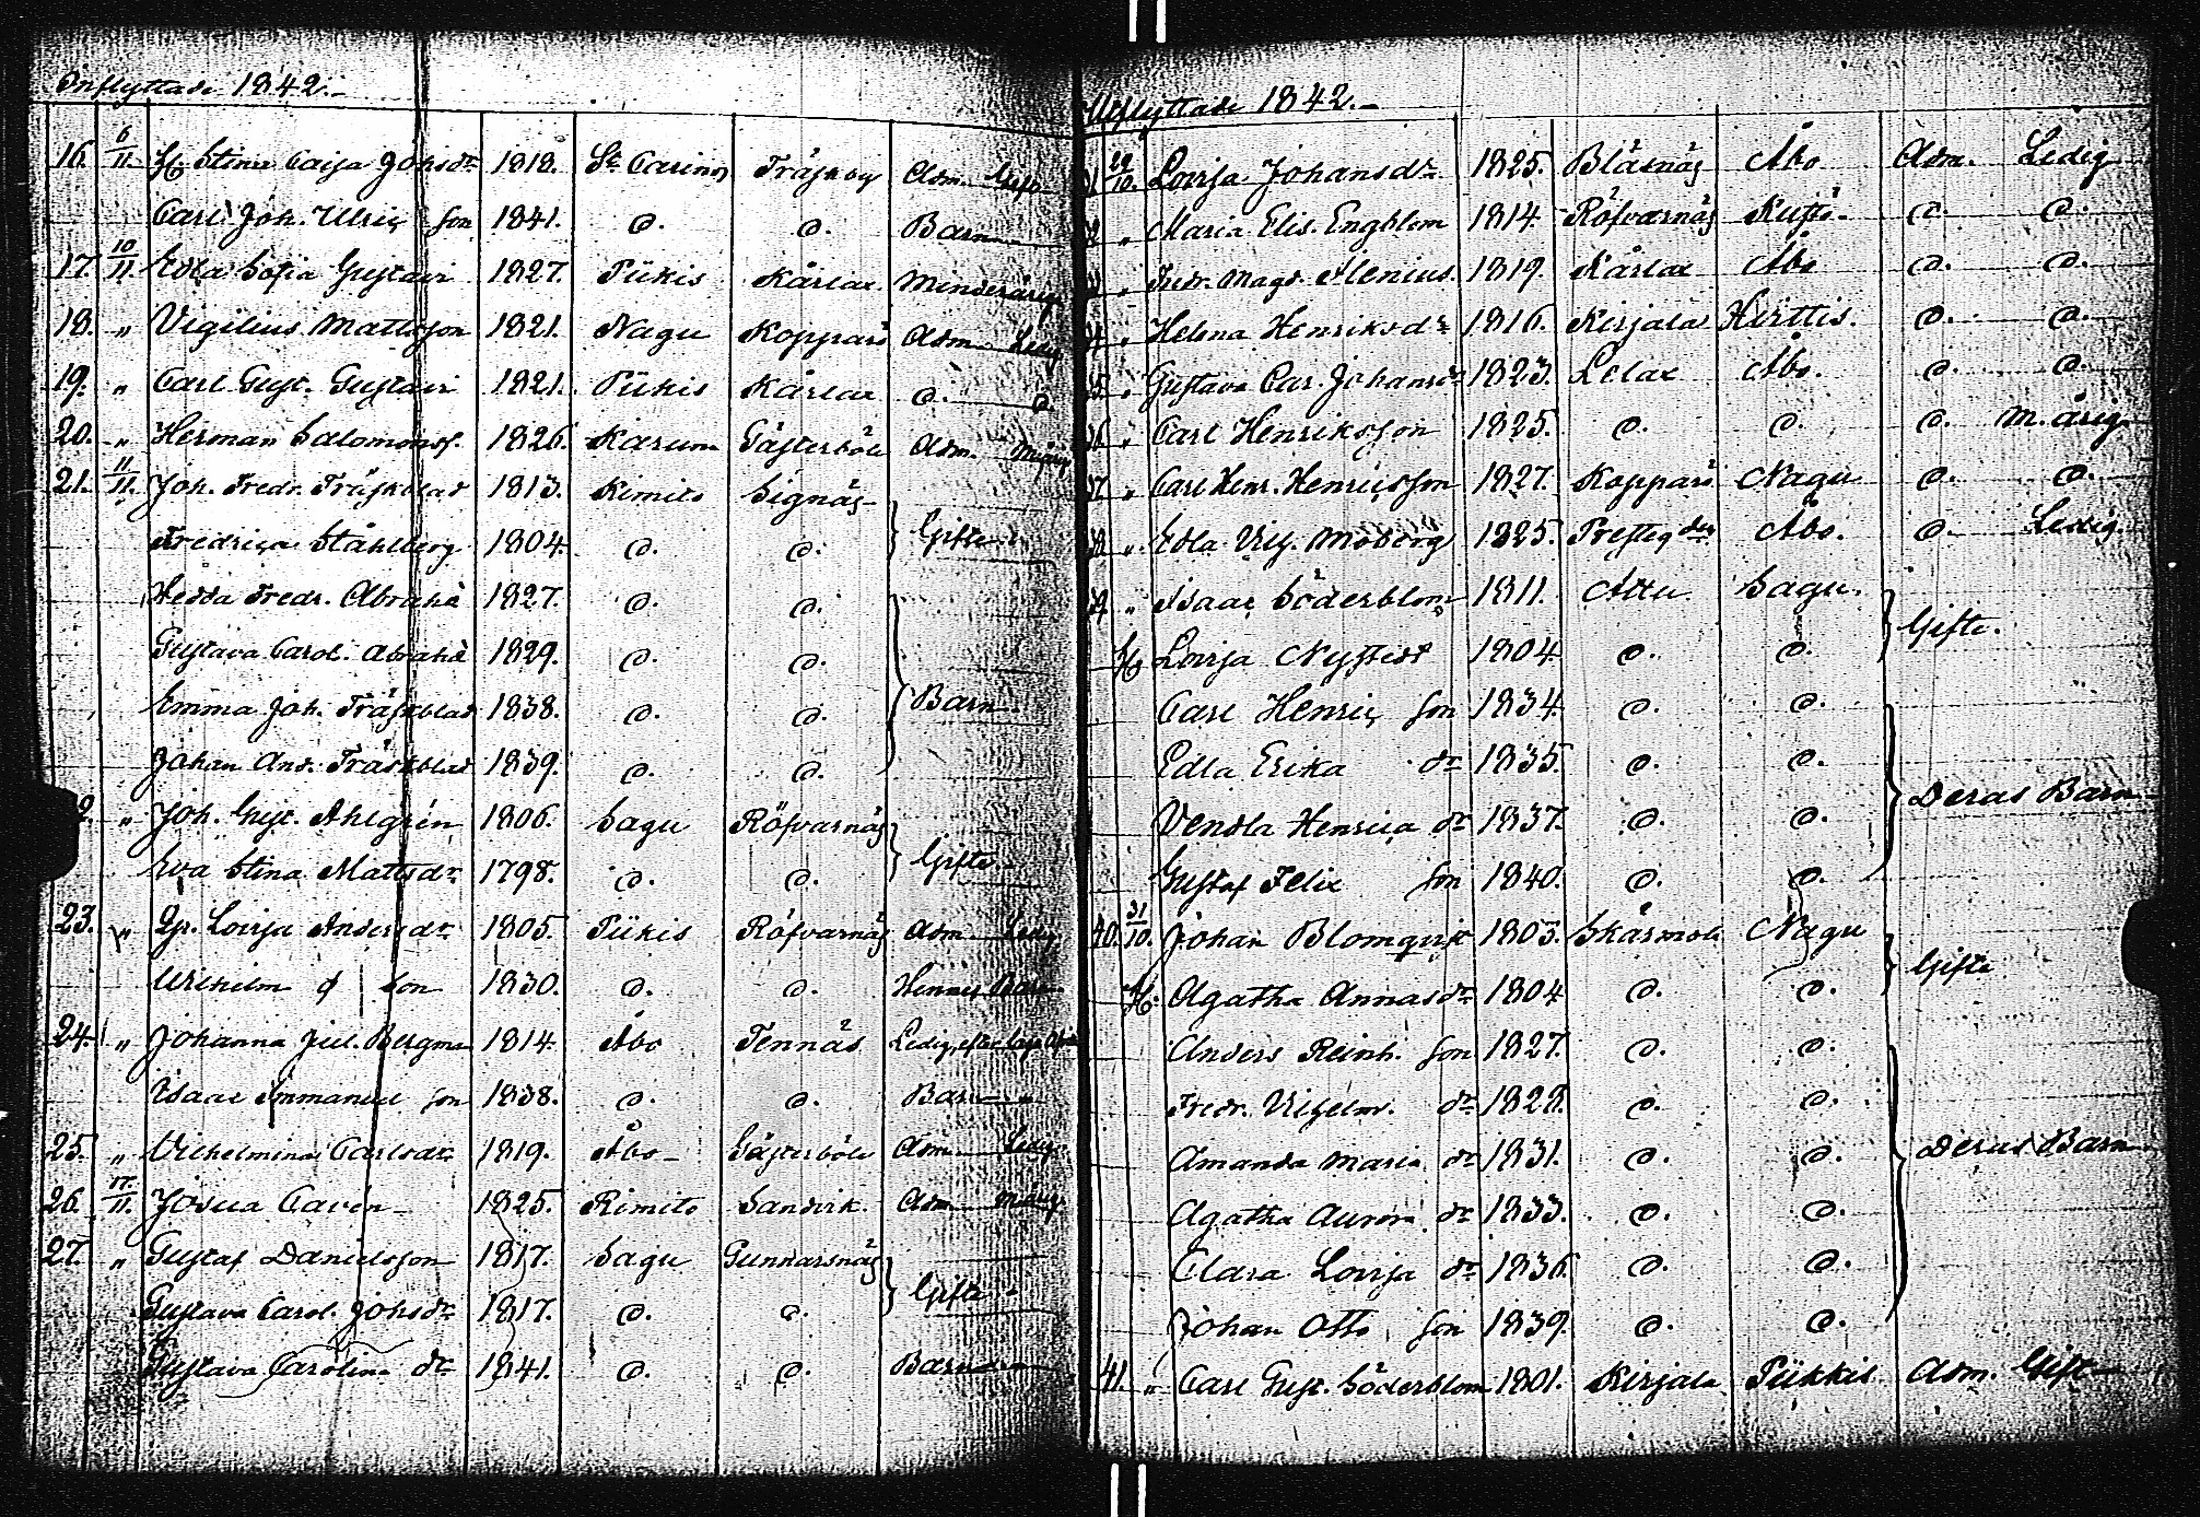 Inflyttade 1842.-
16. 6/11. H. Stina Caisa Johsdr 1818. St. Carins Träskby Adm. Gift
Carl Joh. Ulric son 1841. d. d. Barn
17. 10/11. Edla Sofia Gustavi 1827. Piikis Kårlax Minderårig
18. " Vigilius Mattsson 1821. Nagu Kopparö Adm. Ledig
19. " Carl Gust. Gustavi 1821. Piikis Kårlax d. d.
20. " Herman Salomonss. 1826. Karuna Gästerböle Adm. Mårig
21. 11/11. Joh. Fredr. Träskblad 1813. Kimito Signäs
Fredrica Ståhlberg 1804. d. d. Gifte.
Hedda Fredr. Abraha 1827. d. d.
Gustava Carol. Abraha 1829. d. d.
Emma Joh. Träskblad 1838. d. d. Barn.
Johan And. Träskblad 1839. d. d.
2. " Joh. Gust. Ahlgrén 1806. Sagu Röfvarnäs
Eva Stina Mattsdr 1798. d. d. Gifte.
23. " Qp. Lovisa Andersdr 1805. Piikis Röfvarnäs Adm. Ledig
Wilhelm son 1830. d. d. Hennes Barn
24. " Johanna Jul. Bergman 1814. Åbo Tennäs Ledig, efter
Isaac Immanuel son 1838. d. d. Barn
25. " Vilhelmina Carlsdr 1819. Åbo Gästerböle Adm. Ledig
26. 17/11. Josua Cavén 1825. Rimito Sandvik Adm. Mårig
27. " Gustaf Danielsson 1817. Sagu Gunnarsnäs
Gustava Carol. Johsdr 1817. d. d. Gifte.
Gustava Carolina dr 1841. d. d. Barn
Utflyttade 1842.-
29/10. Lovisa Johansdr 1825. Bläsnäs Åbo Adm. Ledig
" Maria Elis. Engblom 1814. Röfvarnäs Kustö d. d.
" Fredr. Magd. Alenius. 1819. Kårlax Åbo d. d.
" Helena Henriksdr 1816. Kirjala Hiittis. d. d.
" Gustava Car. Johansdr 1823. Lelax Åbo. d. d.
" Carl Henriksson 1825. d. d. d. M. årig
" Carl Henr. Henricsson 1827. Kopparö Nagu d. d.
" Edla Vilh. Moberg 1825. Presteg den Åbo. d. Ledig.
" Isaac Söderblom 1811. Attu Sagu.
H. Lovisa Nystedt 1804. d. d. Gifte.
Carl Henric son 1834. d. d.
Edla Erika dr 1835. d. d.
Vendla Henrica dr 1837. d. d. Deras Barn
Gustaf Felix son 1840. d. d.
40. 31/10. Johan Blomqvist 1803. Skärmola Nagu
H. Agatha Annasdr 1804. d. d. Gifte
Anders Reinh. son 1827. d. d.
Fredr. Vilhelm. dr 1828. d. d.
Amanda Maria dr 1831. d. d. Deras Barn
Agatha Aurora dr 1833. d. d.
Clara Lovisa dr 1836. d. d.
Johan Otto son 1839. d. d.
41. " Carl Gust. Söderblom 1801. Kirjala Piikkis Adm. Gift